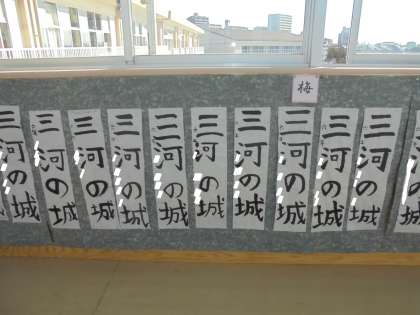 梅
三河の城
三河の城
三河の城
三河の城
三河の城
三河の城
三河の城
三河の城
三河の城
三河の城
三河の城